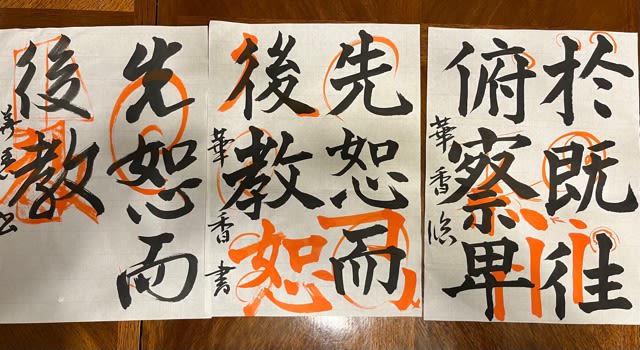 於既往
俯察卑
華香臨
先恕而
後教
恕
華香書
先恕而
後教